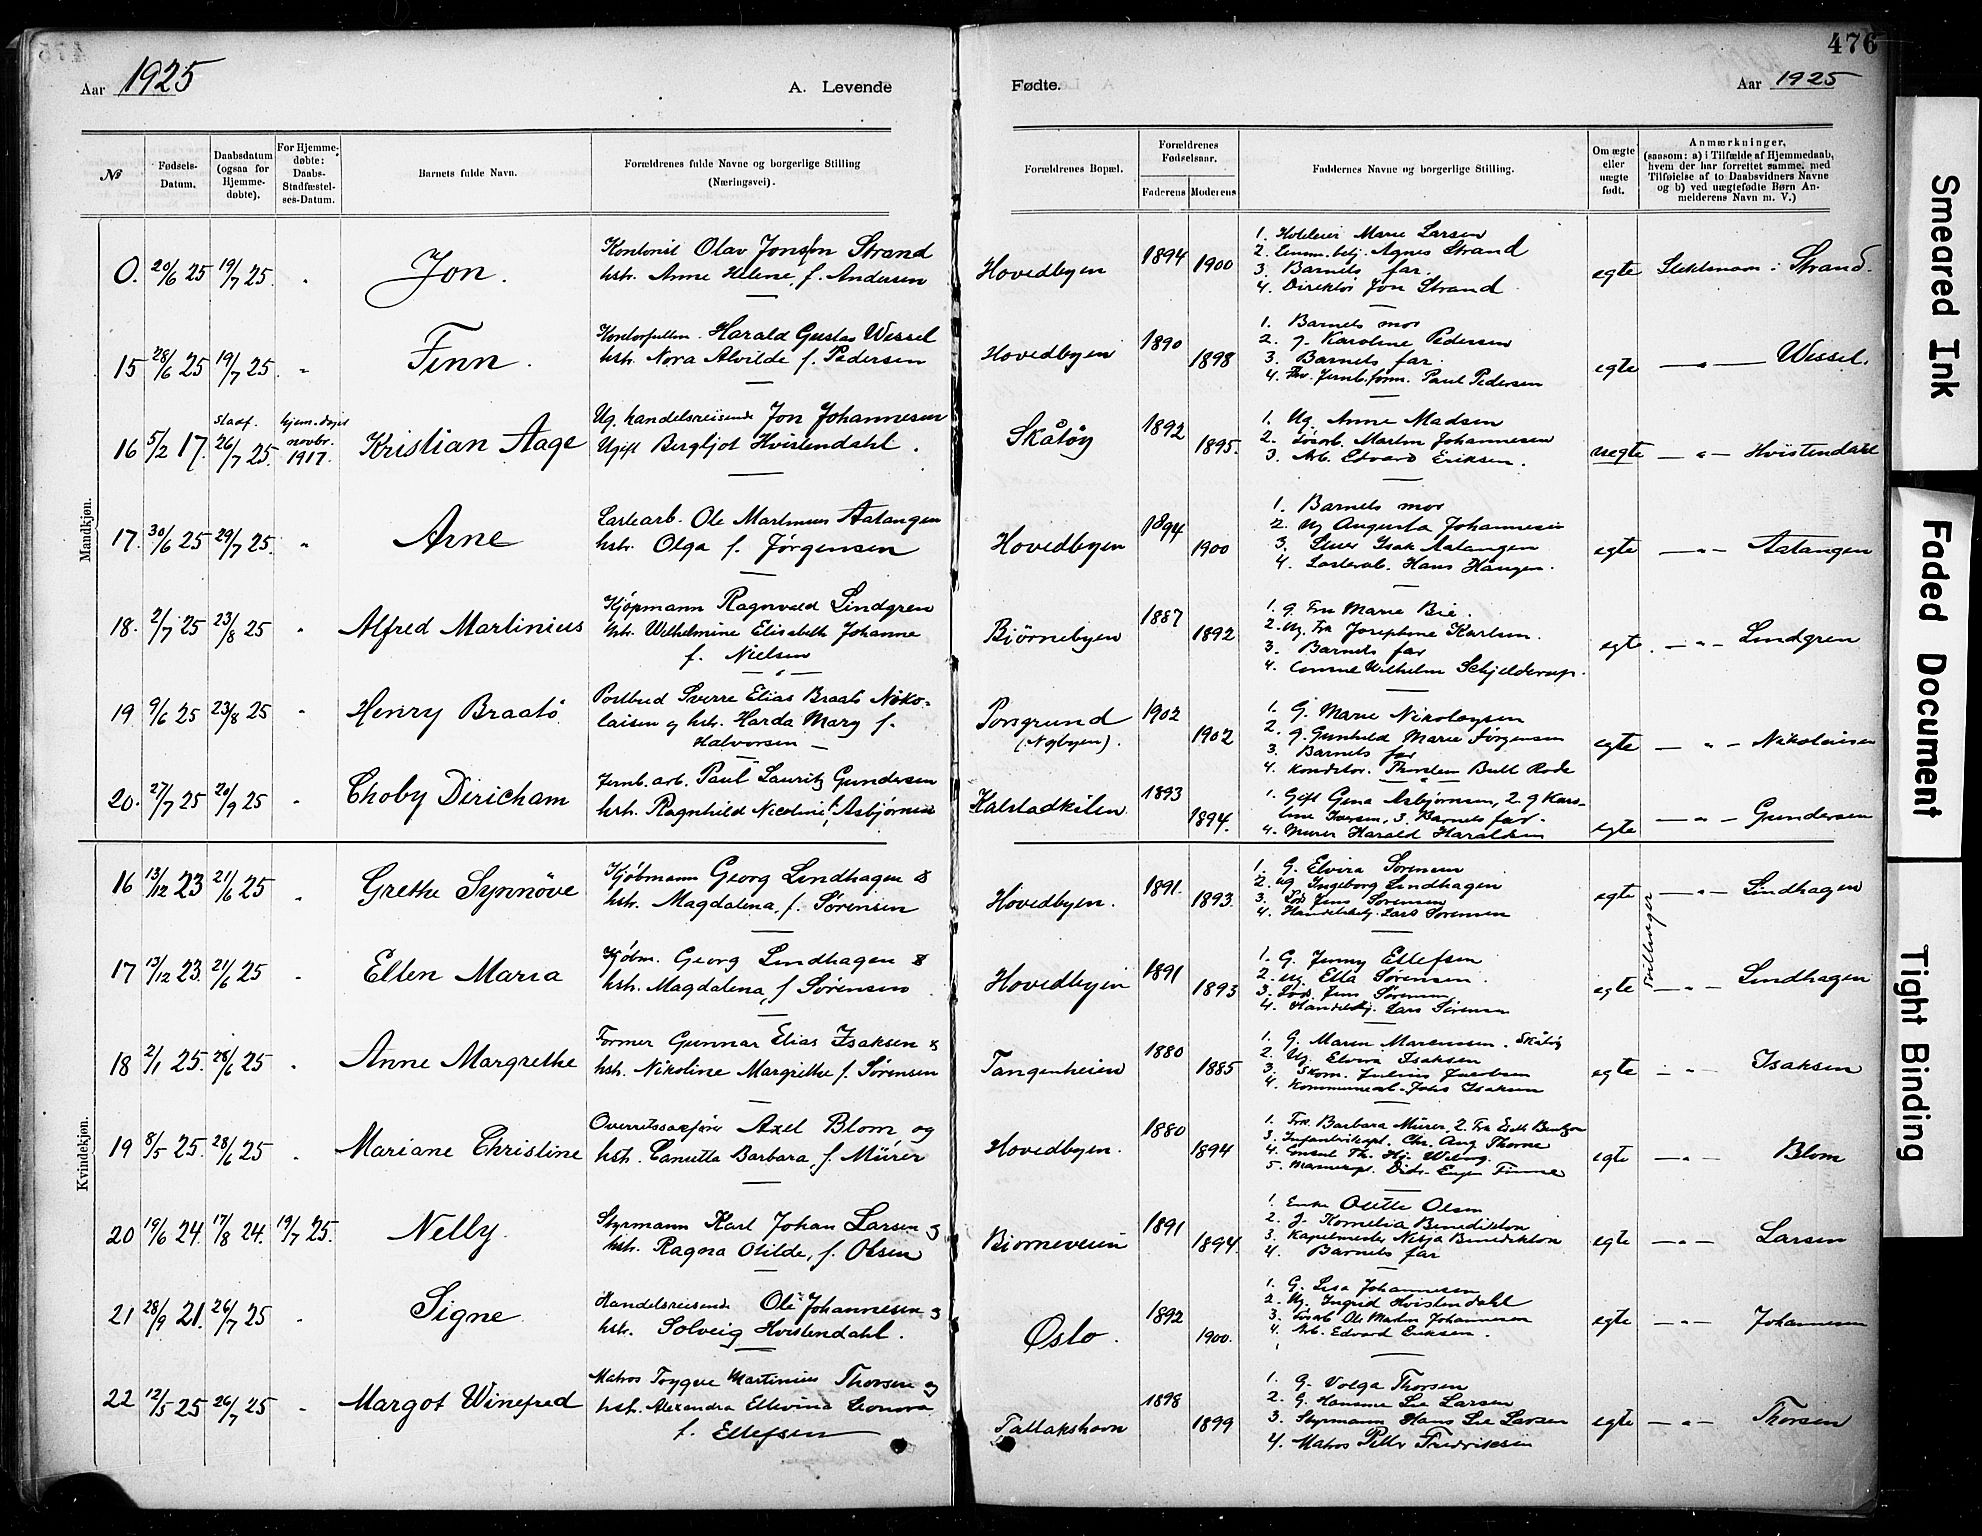 476
Aar 1925
A. Levende
Fødte.
Aar 1925
№
Fødsels-Datum.
Daabsdatum (ogsaa for Hjemmedøbte).
For Hjemmedøbte: Daabs-Stadfæstelses-Datum.
Barnets fulde Navn.
Forældrenes fulde Navne og borgerlige Stilling (Næringsvei).
Forældrenes Bopæl.
Forældrenes Fødselsaar.
Faderens
Moderens
Faddernes Navne og borgerlige Stilling.
Om ægte eller uægte født.
Anmærkninger,
(saasom: a) i Tilfælde af Hjemmedaab,
hvem der har forrettet samme, med
Tilføielse af to Daabsvidners Navne
og b) ved uægtefødte Børn An-
melderens Navn m. V.)
Mandkjøn.
0. 20/6 25 19/7 25. " Jon.
Olav Jonsøn Strand
hstr. Anne Helene, f. Andersen
Hovedbyen 1894 1900
1. Marie Larsen
2. Agnes Strand
3. Barnets far.
4. Direktør Jon Strand
egte Slektsnavn: Strand.
15 28/6 25 19/7 25. " Finn.
Harald Gustav Wessel
hstr. Nora Alvilde f. Pedersen
Hovedbyen 1890 1898
1. Barnets mor
2. g. Karoline Pedersen
3. Barnets far.
4. Fhv. Jernb.form. Paul Pedersen
egte — " — Wessel.
16 5/2 17. stadf. 26/7 25. hjem.døpt novbr. 1917. Kristian Aage
Ug. handelsreisende Jon Johannesen
Ugift Bergljot Hvistendahl.
Skåtøy 1892 1895.
1. Ug. Anne Madsen
2. Løsarb. Martin Johannesen
3. Arb. Edvard Eriksen.
uegte — " — Hvistendahl
17. 30/6 25 29/7 25. " Arne
Lastearb. Ole Martinus Aatangen
hstr. Olga f. Jørgensen
Hovedbyen 1894 1900
1. Barnets mor
2. Ug Augusta Johannesen
3. Isak Aatangen
4. Lastearb. Hans Haugen.
egte — " — Aatangen
18. 2/7 25 23/8 25 " Alfred Martinius
Kjøpmann Ragnvald Lindgren
hstr. Wilhelmine Elisabeth Johanne
f. Nielsen
Bjørnebyen 1887 1892
1. g. Fru Marie Bie.
2. Ug. Frk Josephine Karlsen.
3. Barnets far
4. Consul Wilhelm Schjelderup.
egte. — " — Lindgren
19 9/6 25 23/8 25 " Henry Braatö
Postbud Sverre Elias Braatö Niko-
laisen og hstr. Harda Mary f.
Halvorsen —
Pongrund (Nybyen). 1902 1902
1. G. Marie Nikolaysen
2. g. Gunhild Marie Jørgensen
3. Barnets far
4. Konditor. Thorsten Bull Rode
egte — " — Nikolaisen
20. 27/7 25 20/9 25 " Choby Diricham
Jernb. arb. Paul Lauritz Gundersen
hstr. Ragnhild Nicoline f. Asbjørnsen
Kalstadkilen 1893 1894.
1. Gift Gina Asbjørnsen, 2. g Karo-
line Iversen, 3. Barnets far.
4. Murer Harald Haraldsen
egte — " — Gundersen
Kvindekjøn.
16 13/12 23 21/6 25 " Grethe Synnöve
Kjøbmann Georg Lindhagen &
hstr. Magdalena, f. Sørensen
Hovedbyen. 1891. 1893.
1. G. Elvira Sørensen
2. ug Ingeborg Lindhagen
3. Lods Jens Sørensen
4. Handelsbetj. Lars Sørensen
egte — " — Lindhagen
tvillinger
17 13/12 23. 21/6 25 " Ellen Maria
Kjøbm. Georg Lindhagen &
hstr. Magdalena, f Sørensen
Hovedbyen 1891 1893
1. G. Jenny Ellefsen
2. ug Ella Sørensen.
3. Lods Jens Sørensen
4. Handelsbetj. Lars Sørensen
egte — " — Lindhagen
18 2/1 25. 28/6 25 " Anne Margrethe
Former Gunnar Elias Isaksen &
hstr. Nikoline Margrethe f. Sørensen
Tangenheien 1880 1885
1. G. Maren Marensen. Skåtøy
2. Ug. Elvira Isaksen
3. Skom. Julius Jacobsen
4. Isaksen
egte — " — Isaksen
19 8/5 25. 28/6 25 " Mariane Christine
Overretssakfører Axel Blom og
hstr. Canutta Barbara, f. Mürer
Hovedbyen. 1880 1894
1. Frk. Barbara Mürer, 2. Frk
3. Chr. Aug Thorne
4. Consul Th.
5. Finne
egte — " — Blom
20 19/6 24. 17/8 24. 19/7 25. Nelly.
Styrmann Karl Johan Larsen og
hstr. Ragna Otilde, f. Olsen
Bjorneveien 1891 1894.
1. Enke Olette Olsen
2. g. Kornelia Benedikton
3. Kapelmester Benedikton
4. Barnets far
egte — " — Larsen
21 28/9 21. 26/7 25 " Signe.
Handelsreisende Ole Johannesen og
hstr. Solveig Hvistendahl.
Oslo. 1892 1900.
1. G. Lisa Johannesen
2. Ug. Ingrid Hvistendahl
3. Løsarb Ole Martin Johannesen
4. Arb. Edvard Eriksen.
egte — " — Johannesen
22 12/5 25 26/7 25 " Margot Winefred
Matros Trygve Martinius Thorsen og
hstr. Alexandra Ellevina Leonora
f. Ellefsen
Tallakshavn 1898 1899
1. G. Volga Thorsen
2. G. Hansine Lie Larsen
3. Styrmann Hans Lie Larsen
4. Matros Peter Fredriksen
egte — " — Thorsen
Smeared Ink
Faded Document
Tight Binding